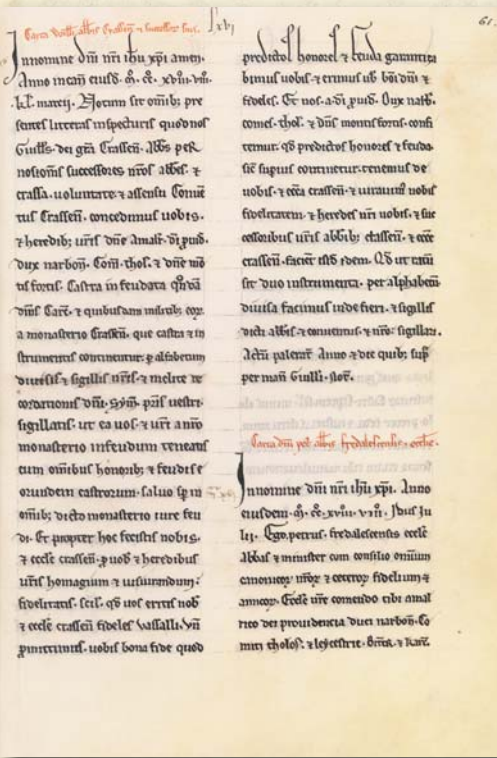 Carta Willi abbis Crassen & successor suis.
lxvi
61.
Innomine dni nri ihu xpi amen.
Anno incarn eiusd. M. CC. xviii. viii.
kl. marcii. Notum sit omib; pre
sentes litteras inspecturis quod nos
Guills. dei gra Crassen. Abbs per
nos omis successores nros abbes. &
crassa. uoluntate. & assensu Conue
tus Crassen. concedimus uobis.
& heredib; uris dne Amalr. di puid.
dux narbon. Com. thol. & dne mo
tis fortis. Castra infeudata
dnus Carc. & quibusdam militib;
a monasterio Crassen. que castra & in
strumentis continentur. p alfabetum
diuisis & sigillis uris. & melite re
cordationis dni. Sym. pris uestri.
sigillatis. ut ea uos & uri a nro
monasterio in feudum teneatis
cum omibus honorib; & feudis e
orundem castrorum. saluo sp in
omib; dicto monasterio iure feu
di. Et propter hoc fecistis nobis.
& eccle crassen. p uob & heredibus
uris homagium & iusiurandum.
fidelitatis. scil. qd uos eritis nob
& eccle crassen fideles uassalli. Vn
pmittimus. uobis bona fide quod
predictos honores & feuda garentita
bimus uobis & erimus ub boni dni &
fideles. Et nos. a. di puid. Dux narb.
comes. thol. & dns montis fortis. confi
temur. qd predictos honores & feuda.
sic supius continetur. tenemus de
uobis. & ecca crassen. & iurauim uobis
fidelitatem. & heredes nri uobis. & suc
cessoribus uris abbib; crassen. & ecce
crassen. facient istd idem. Qd ut ratu
sit duo instrumenta. per alphabetu
diuisa facimus inde fieri. & sigillis
dicti abbis. & conuentus. & nro. sigillari.
Actu palerat. Anno & die quib; sup
per man Guilli. not.
Carta dni pet. abbis fredalescensis. ecclie.
Innomine dni nri ihu xpi. Anno
eiusdem. M. CC. xviii. viii. Idus iu
lii. Ego. petrus. fredalescensis eccle
Abbas & minister cum consilio omnium
canonicor nror & ceteror fidelium &
amicor. Eccle nre comendo tibi amal
rico dei prouidencia duci narbon. Co
miti tholos. & leycestrie. Bitter. & Karc.